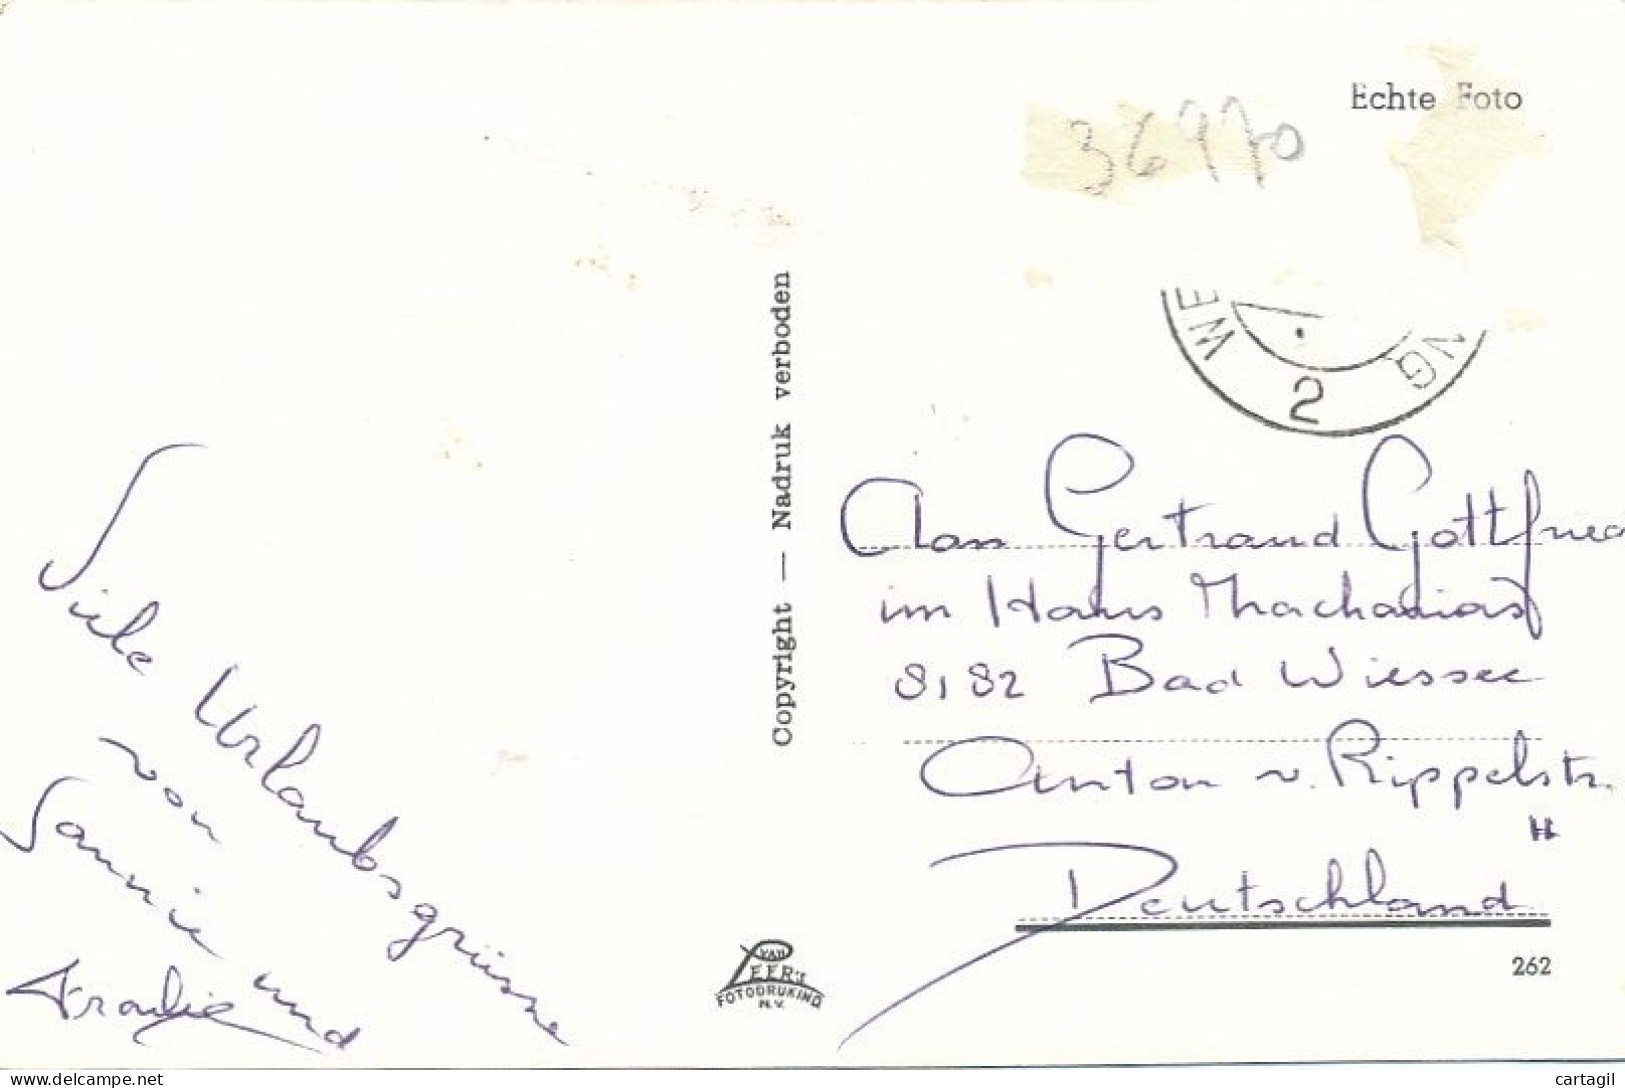 Echte Foto
36970
WE NG
2
Copyright — Nadruk verboden
Viele Urlaubsgrüsse
von
Sannie und
Gertraud Gottfried
im Haus
8182 Bad Wiessee
Anton v. Rippelstr.
Deutschland
VAN
LEER'S
FOTODRUKIND
N.V.
262
cartagil
https://www.delcampe.net